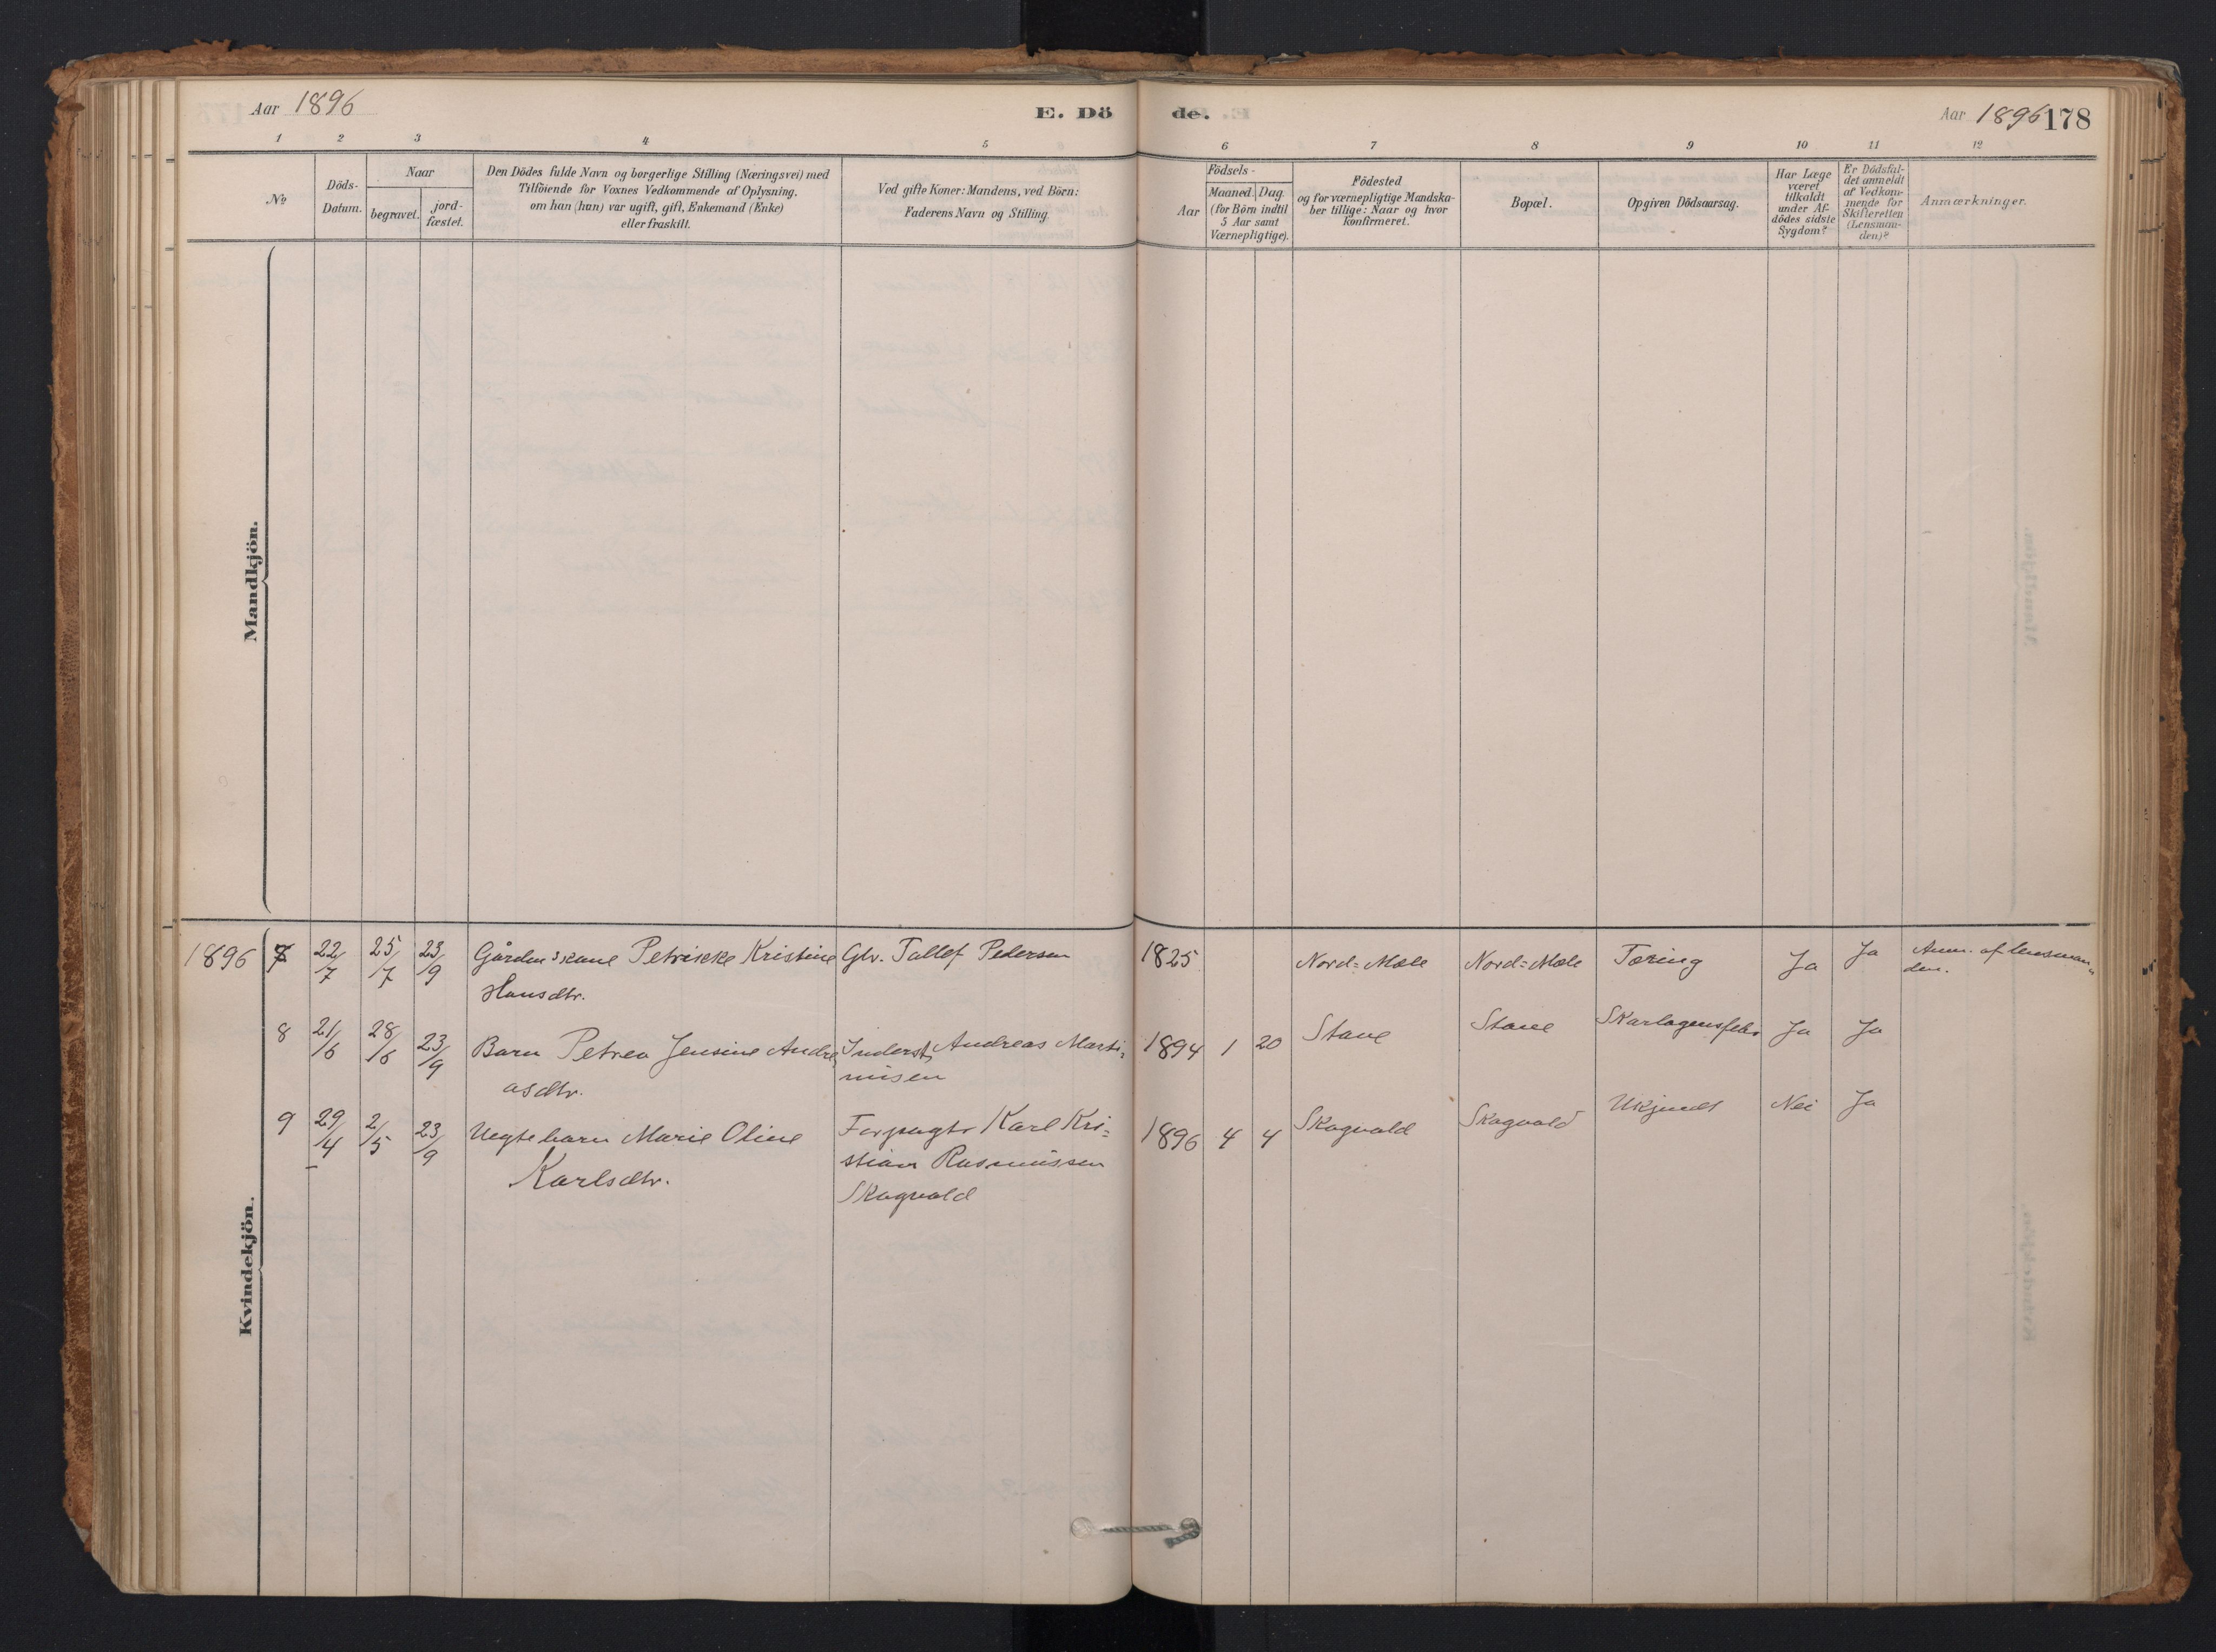 Aar 1896
E. Dö
de.
Aar 1896 178
1 2 3 4 5
6 7 8 9 10 11 12
No
Döds-
Datum.
Naar
begravet.
jord-
fæstet.
Den Dödes fulde Navn og borgerlige Stilling (Næringsvei) med
Tilföiende for Voxnes Vedkommende af Oplysning,
om han (hun) var ugift, gift, Enkemand (Enke)
eller fraskilt.
Ved gifte Koner: Mandens, ved Börn:
Faderens Navn og Stilling.
Aar
Födsels-
Maaned. Dag.
(for Börn indtil
5 Aar samt
Værnepligtige).
Födested
og for værnepligtige Mandska-
ber tillige: Naar og hvor
konfirmeret.
Bopæl.
Opgiven Dödsaarsag.
Har Læge
været
tilkaldt
under Af-
dödes sidste
Sygdom?
Er Dödsfal-
det anmeldt
af Vedkom-
mende for
Skifteretten
(Lensman-
den)?
Anmærkninger.
Mandkjön.
Kvindekjön.
1896 7 22/7 25/7 23/9 Gårdmskone Petrikke Kristine Glv. Tallef Pedersen 1825 Nord-Mæle Nord-Mæle Tæring Ja Ja Anm. af lensman-
Hansdtr. den.
8 21/6 28/6 23/9 Barn Petrea Jensine Andre Inderst Andreas Marti- 1894 1 20 Stave Stave Skarlagensfeber Ja Ja
asdtr. nusen
9 29/4 2/5 23/9 Uegte barn Marie Oline Forpagtr Karl Kri- 1896 4 4 Skogvold Skogvold Ukjendt Nei Ja
Karlsdtr. stian Rasmussen
Skogvold